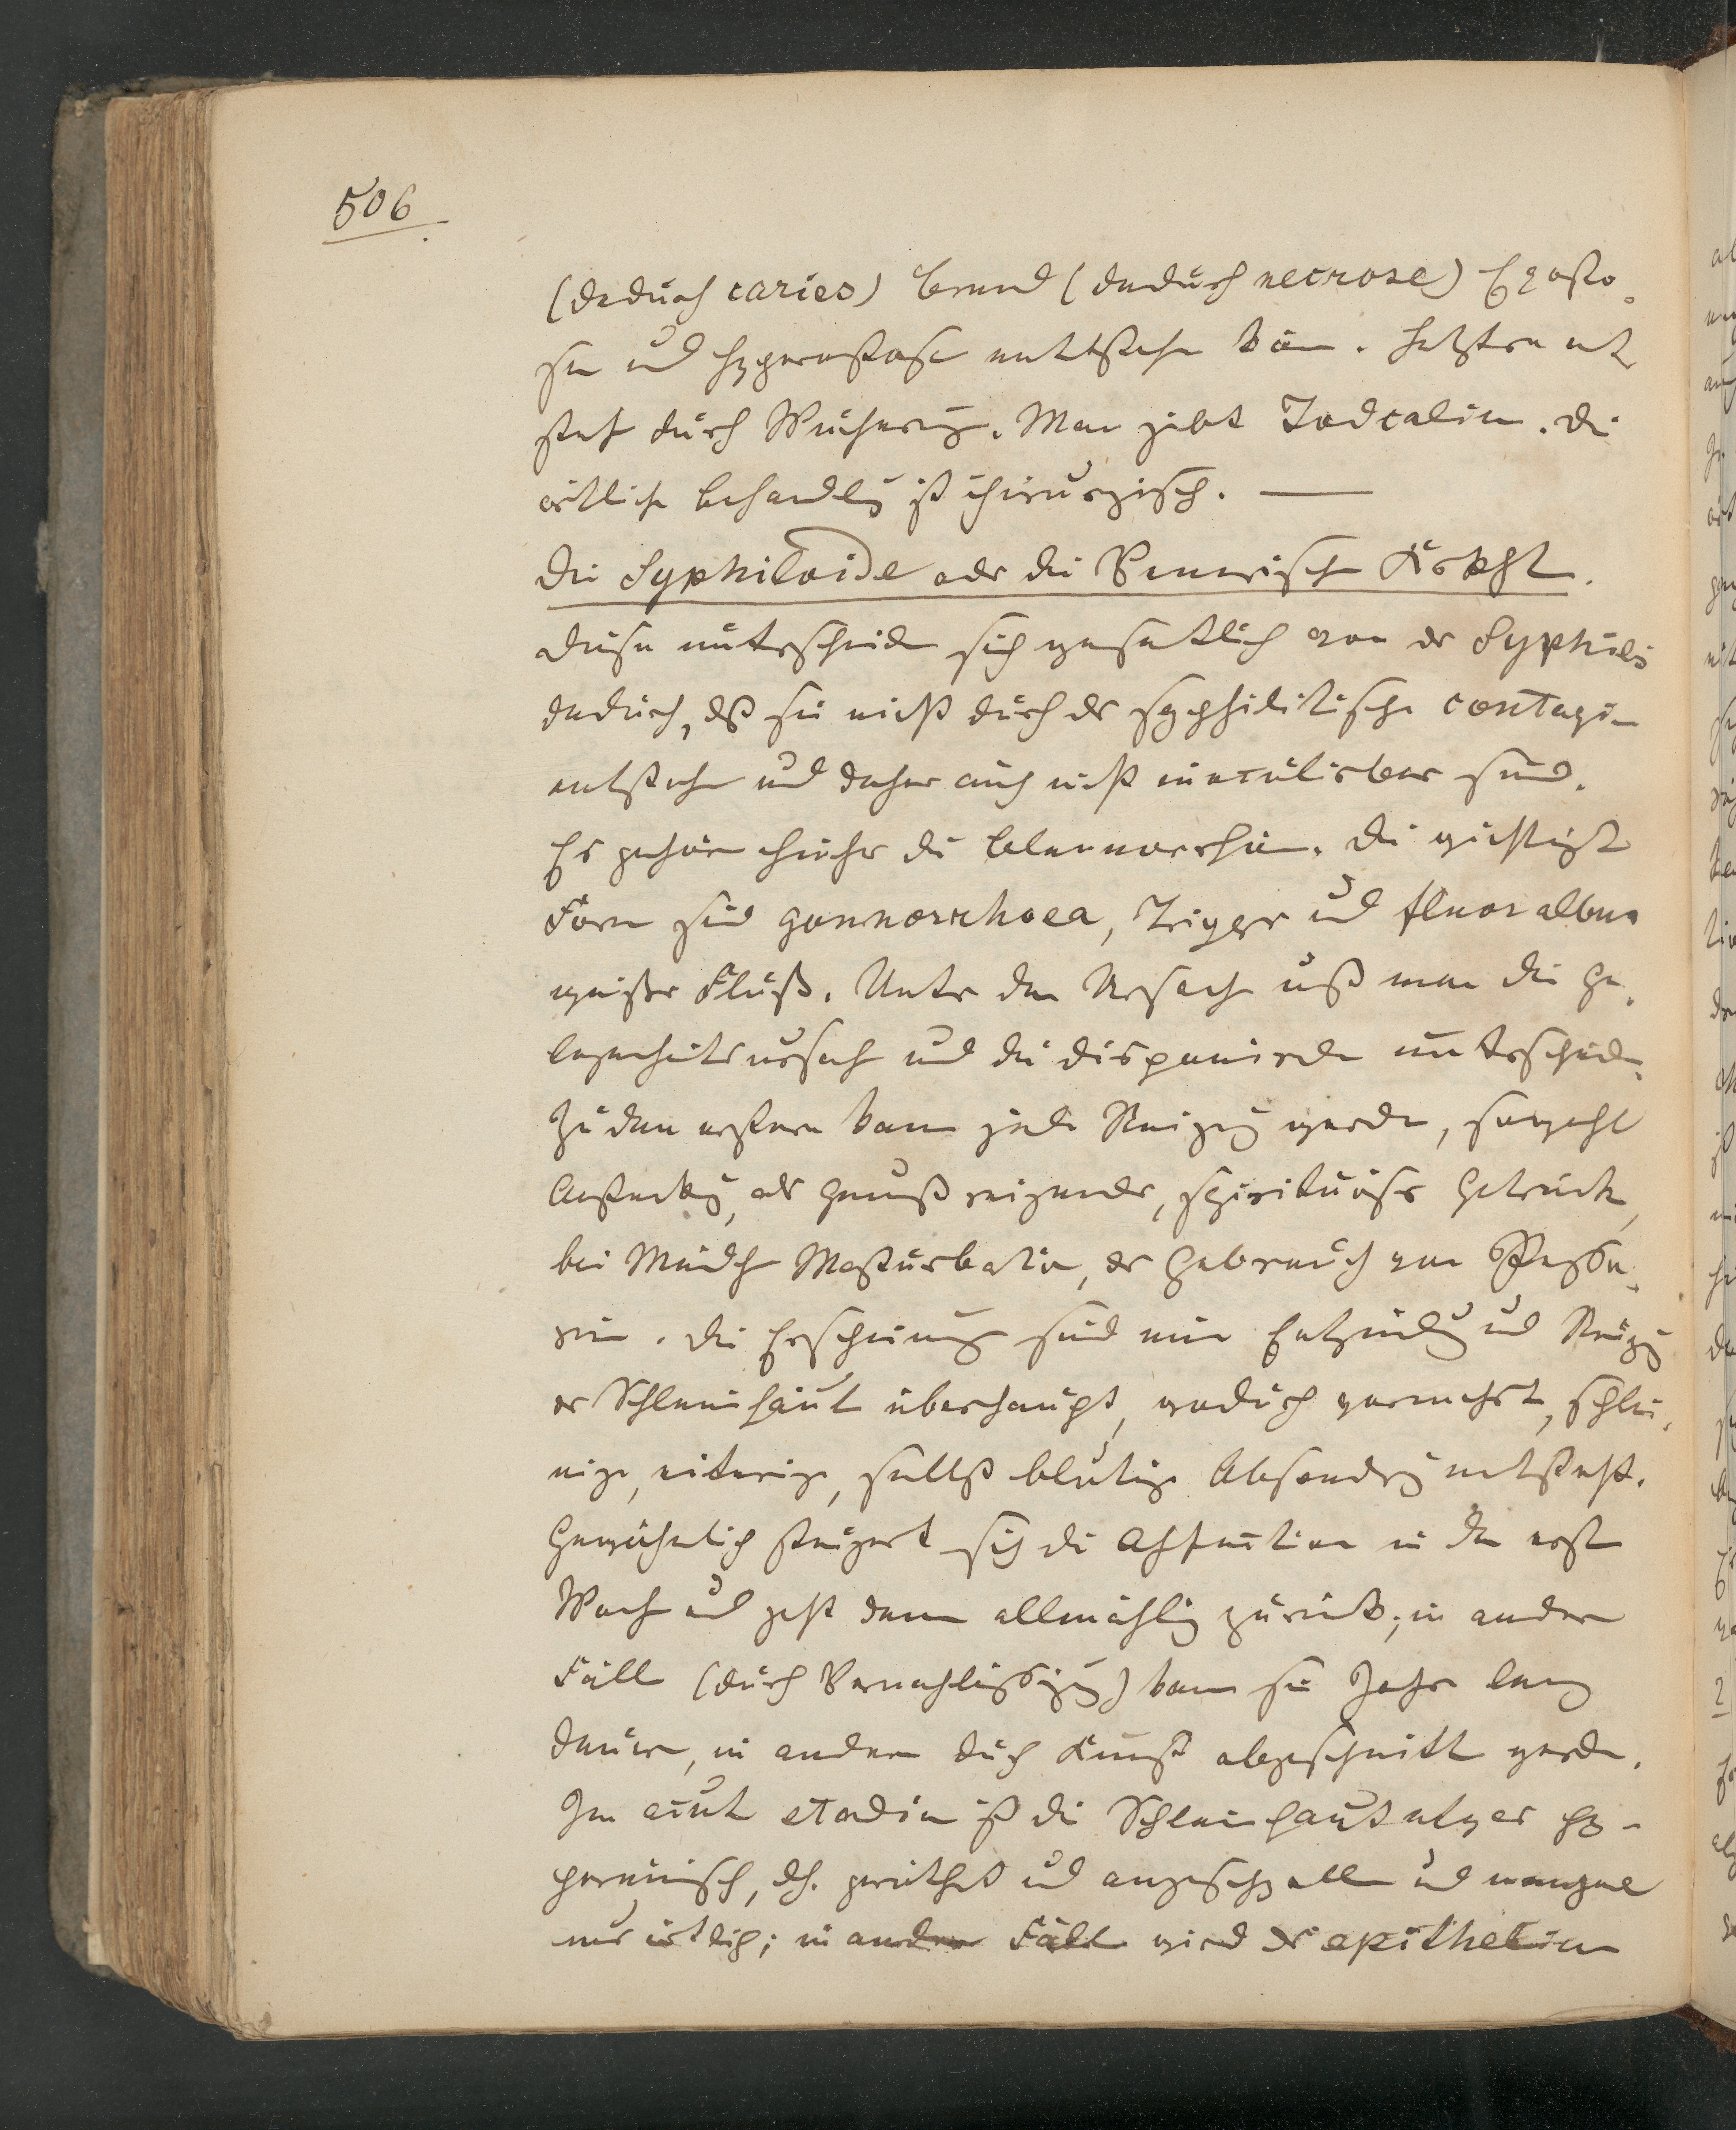 506
(daduch caries) Brand (dadurch necrose) Exosto¬
sen ud Hyperostosen entstehen kön. Letztere ent
steht durch Wucherung. Man gibt Jodcalium. Die
örtliche Behandlg ist chirurgisch. —
Die Syphiloide oder die Venerische Krkht.
Diese unterscheiden sich wesentlich von der Syphilis
dadurch, dß sie nicht durch das syphilitische Contagium
entstehen und daher auch nicht inoculirbar sind.
Es gehören hieher die Blennorrhöen. Die wichtigste
Formen sind gonnorrhoea, Tripper ud fluor albus
weißer Fluß. Unter den Ursachen muß man die Ge¬
legenheitsursach und die disponirende unterscheiden.
Zu den ersteren kann jede Reizung werden, sowohl
Ansteckung, als Genuß reizender, spirituöser Getränke,
bei Mädchen Masturbation, der Gebrauch von Pessa¬
rien. Die Erscheinung sind eine Entzündg ud Reizg
der Schleimhaut überhaupt, wodurch vermehrte, schlei¬
mige, eiterige, selbst blutige Absondrg entsteht.
Gewöhnlich steigert sich die Affection in den ersten
Wochen ud geht dann allmählig zurück; in andern
Fällen (durch Vernachlässigung) kann sie Jahre lang
dauern, in andern duch Kunst abgeschnitten werden.
Im acuten Stadium ist die Schleimhaut entweder hy-
peremisch, dh. geröthet ud angeschwollen ud manchmal
nur örtlich; in andern Fällen wird das epithelium